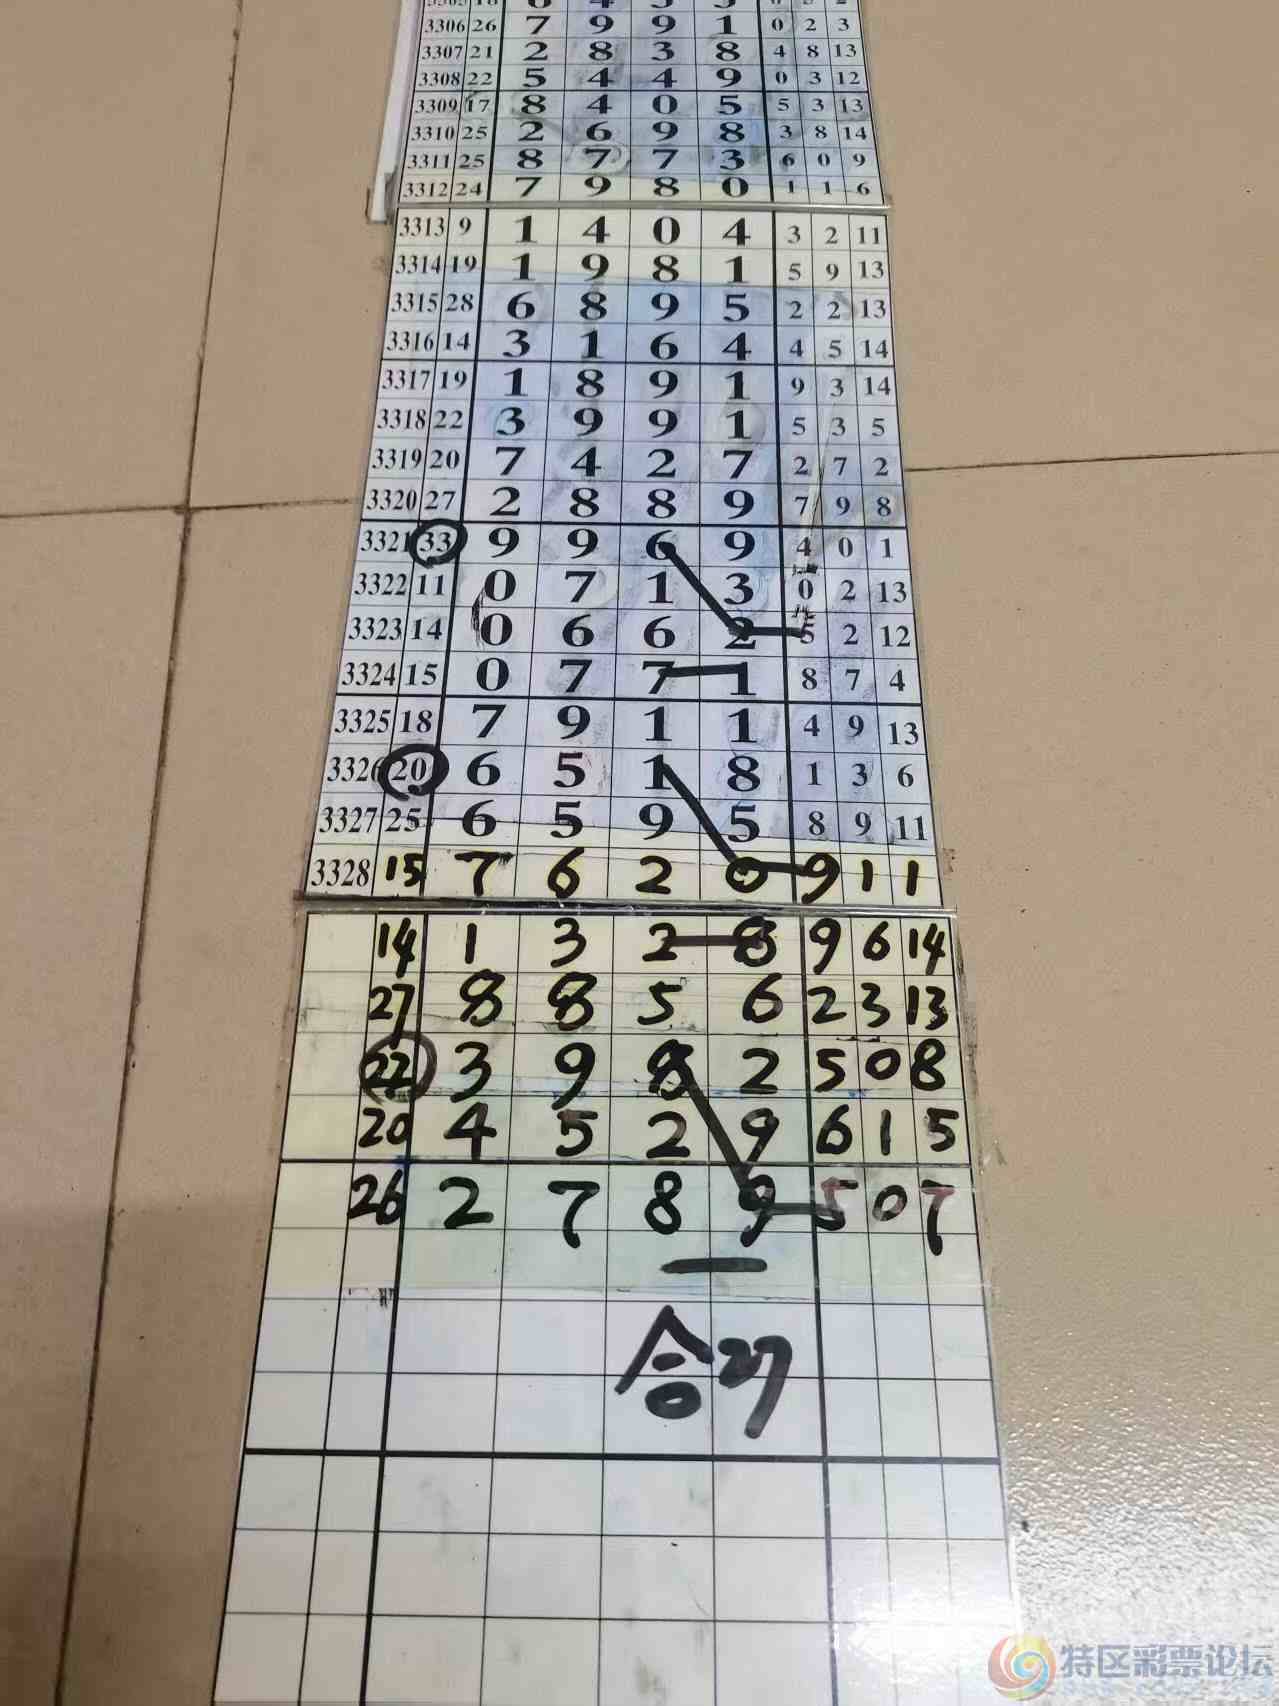 3306 26 7 9 9 1 0 2 3
3307 21 2 8 3 8 4 8 13
3308 22 5 4 4 9 0 3 12
3309 17 8 4 0 5 5 3 13
3310 25 2 6 9 8 3 8 14
3311 25 8 7 7 3 6 0 9
3312 24 7 9 8 0 1 1 6
3313 9 1 4 0 4 3 2 11
3314 19 1 9 8 1 5 9 13
3315 28 6 8 9 5 2 2 13
3316 14 3 1 6 4 4 5 14
3317 19 1 8 9 1 9 3 14
3318 22 3 9 9 1 5 3 5
3319 20 7 4 2 7 2 7 2
3320 27 2 8 8 9 7 9 8
3321 33 9 9 6 9 4 0 1
3322 11 0 7 1 3 0 2 13
3323 14 0 6 6 2 5 2 12
3324 15 0 7 7 1 8 7 4
3325 18 7 9 1 1 4 9 13
3326 20 6 5 1 8 1 3 6
3327 25 6 5 9 5 8 9 11
3328 15 7 6 2 0 9 1 1
14 1 3 2 8 9 6 14
27 8 8 5 6 2 3 13
22 3 9 8 2 5 0 8
20 4 5 2 9 6 1 5
26 2 7 8 9 5 0 7
合27
特区彩票论坛